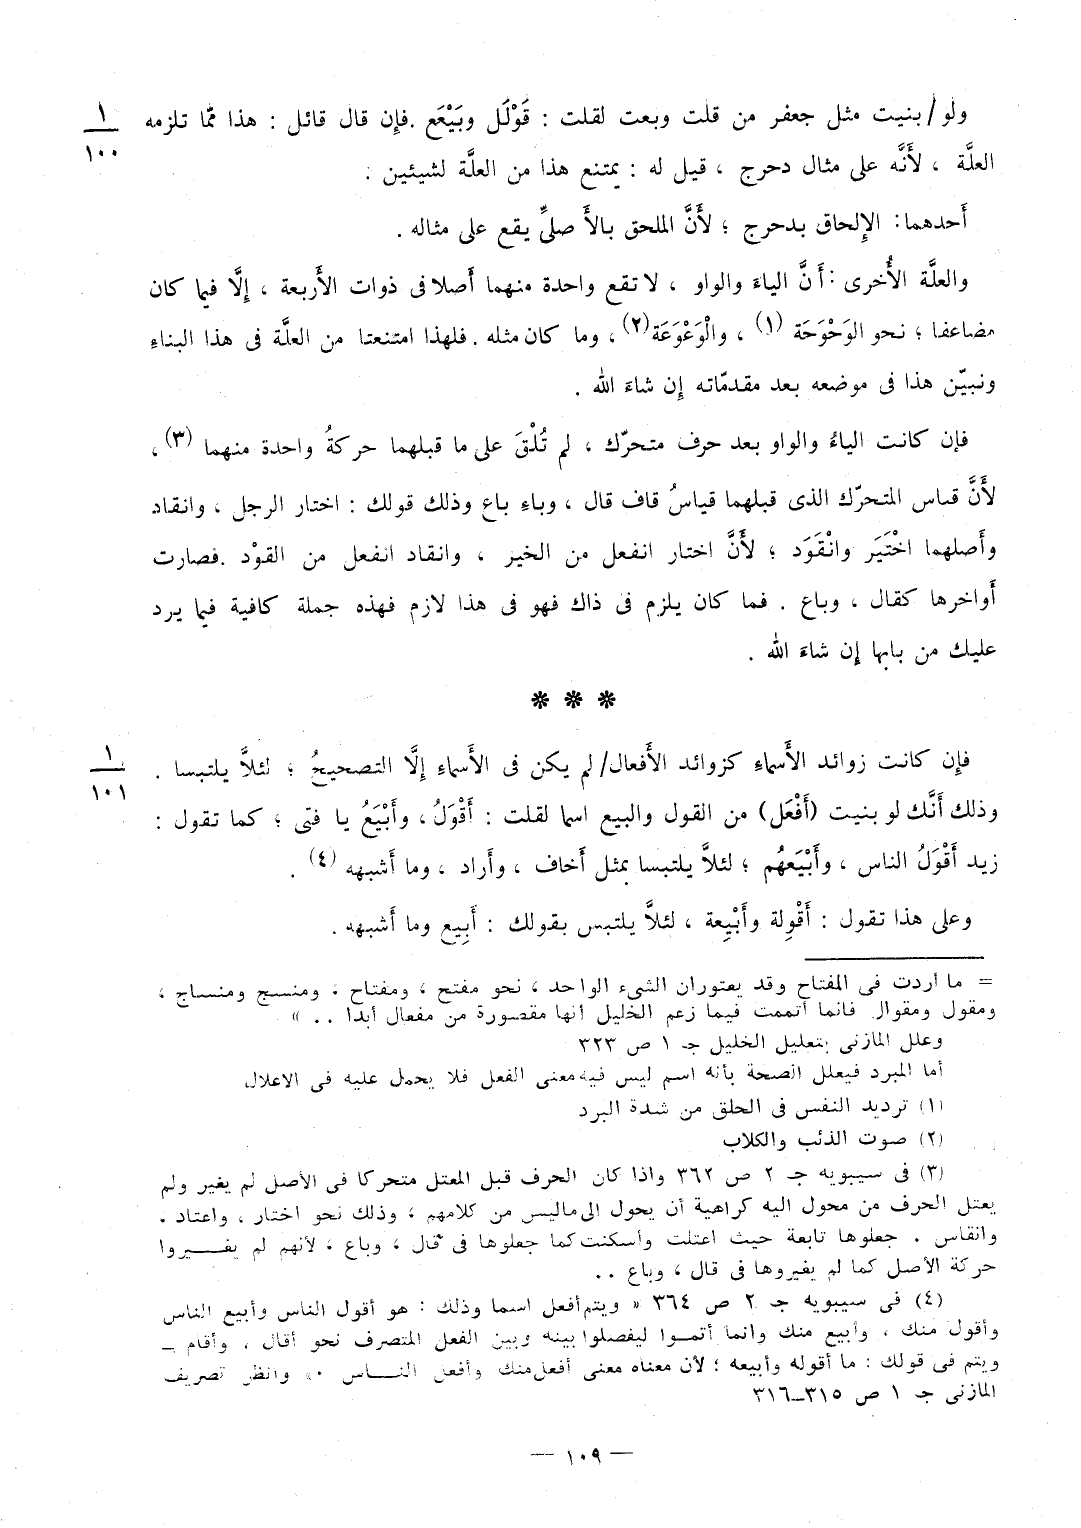 ولو/ بنيت مثل جعفر من قلت وبعت لقلت : قَوْلَل وبَيْعَع . فإِن قال قائل : هذا ممّا تلزمه
١
١٠٠
العلَّة ، لأَنَّه على مثال دحرج ، قيل له : يمتنع هذا من العلَّة لشيئين .
أَحدهما: الإِلحاق بدحرج ؛ لأَنَّ الملحق بالأَصليِّ يقع على مثاله .
والعلَّة الأُخرى : أَنَّ الياءَ والواو ، لا تقع واحدة منهما أَصلا فى ذوات الأَربعة ، إِلَّا فيما كان
مضاعفا ؛ نحو الوَحْوَحَة (١) ، والْوَعْوَعَة (٢) ، وما كان مثله . فلهذا امتنعتا من العلَّة فى هذا البناءِ
ونبيّن هذا فى موضعه بعد مقدّماته إِن شاءَ الله .
فإِن كانت الياءُ والواو بعد حرف متحرّك ، لم تُلْقَ على ما قبلهما حركةُ واحدة منهما (٣) ،
لأَنَّ قياس المتحرّك الذى قبلهما قياسُ قاف قال ، وباءِ باع وذلك قولك : اختار الرجل ، وانقاد
وأَصلهما اخْتَيَر وانْقَوَد ؛ لأَنَّ اختار انفعل من الخير ، وانقاد انفعل من القوْد . فصارت
أَواخرها كقال ، وباع . فما كان يلزم فى ذاك فهو فى هذا لازم فهذه جملة كافية فيما يرد
عليك من بابها إِن شاءَ الله .
* * *
فإِن كانت زوائد الأَسماءِ كزوائد الأَفعال/ لم يكن فى الأَسماءِ إِلَّا التصحيحُ ؛ لئلاَّ يلتبسا .
١
١٠١
وذلك أَنَّك لو بنيت (أَفْعَل) من القول والبيع اسما لقلت : أَقْوَلُ ، وأَبْيَعُ يا فتى ؛ كما تقول :
زيد أَقْوَلُ الناس ، وأَبْيَعهُم ؛ لئلاَّ يلتبسا بمثل أَخاف ، وأَراد ، وما أَشبهه (٤) .
وعلى هذا تقول : أَقْوِلة وأَبْيِعة ، لئلاَّ يلتبس بقولك : أَبِيع وما أَشبهه .
= ما أردت فى المفتاح وقد يعتوران الشىء الواحد ، نحو مفتح ، ومفتاح ، ومنسج ومنساج ،
ومقول ومقوال فانما أتممت فيما زعم الخليل أنها مقصورة من مفعال أبدا . . »
وعلل المازنى بتعليل الخليل جـ ١ ص ٣٢٣
أما المبرد فيعلل الصحة بأنه اسم ليس فيه معنى الفعل فلا يحمل عليه فى الاعلال
(١) ترديد النفس فى الحلق من شدة البرد
(٢) صوت الذئب والكلاب
(٣) فى سيبويه جـ ٢ ص ٣٦٢ واذا كان الحرف قبل المعتل متحركا فى الأصل لم يغير ولم
يعتل الحرف من محول اليه كراهية أن يحول الى ماليس من كلامهم ، وذلك نحو اختار ، واعتاد .
وانقاس . جعلوها تابعة حيث اعتلت وأسكنت كما جعلوها فى قال ، وباع ، لأنهم لم يغيــروا
حركة الأصل كما لم يغيروها فى قال ، وباع ..
(٤) فى سيبويه جـ ٢ ص ٣٦٤ « ويتم أفعل اسما وذلك : هو أقول الناس وأبيع الناس
وأقول منك ، وأبيع منك وانما أتمــوا ليفصلوا بينه وبين الفعل المتصرف نحو أقال ، وأقام ــ
ويتم فى قولك : ما أقوله وأبيعه ؛ لأن معناه معنى أفعل منك وأفعل النــاس ٠» وانظر تصريف
المازنى جـ ١ ص ٣١٥ــ٣١٦
— ١٠٩ —